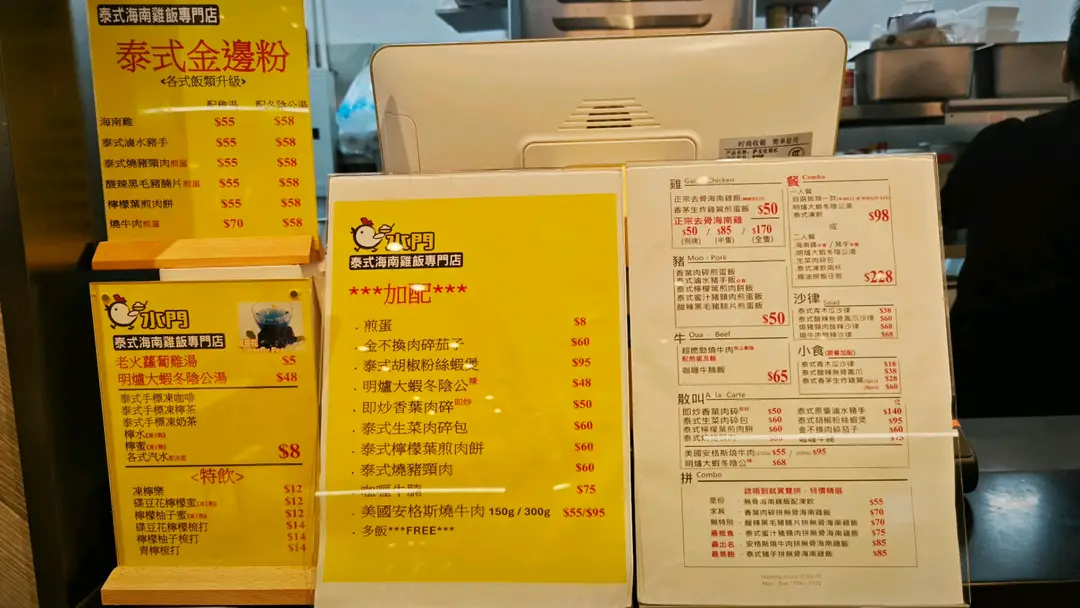 泰式海南雞飯專門店
泰式金邊粉
<各式飯類升級>
配雞湯 配冬陰公湯
海南雞 $55 $58
泰式滷水豬手 $55 $58
泰式燒豬頸肉煎蛋 $55 $58
酸辣黑毛豬腩片煎蛋 $55 $58
檸檬葉煎肉餅 $55 $58
燒牛肉煎蛋 $70 $58
水門
泰式海南雞飯專門店
老火蘿蔔雞湯 $5
明爐大蝦冬陰公湯 $48
泰式手標凍咖啡
泰式手標凍檸茶
泰式手標凍奶茶
檸水
檸蜜
各式汽水 $8
<特飲>
凍檸樂 $12
碟豆花檸檬蜜 $12
檸檬柚子蜜 $12
碟豆花檸檬梳打 $14
檸檬柚子梳打 $14
青檸梳打 $14
水門
泰式海南雞飯專門店
***加配***
· 煎蛋 $8
· 金不換肉碎茄子 $60
· 泰式胡椒粉絲蝦煲 $95
· 明爐大蝦冬陰公辣 $48
· 即炒香葉肉碎即炒 $50
· 泰式生菜肉碎包 $60
· 泰式檸檬葉煎肉餅 $60
· 泰式燒豬頸肉 $60
· 咖喱牛腩 $75
· 美國安格斯燒牛肉 150g / 300g $55/$95
· 多飯***FREE***
雞 Chicken
正宗去骨海南雞飯
香茅生炸雞翼煎蛋飯 $50
正宗去骨海南雞
$50 / $85 / $170
(例牌) (半隻) (全隻)
豬 Moo - Pork
香葉肉碎煎蛋飯
泰式滷水豬手飯
泰式檸檬葉煎肉餅飯
泰式蜜汁豬頸肉煎蛋飯
酸辣黑毛豬腩片煎蛋飯 $50
牛 Oua - Beef
超撚勁燒牛肉
配煎蛋及飯
咖喱牛腩飯 $65
散叫 A la Carte
即炒香葉肉碎 $50
泰式生菜肉碎包 $60
泰式檸檬葉煎肉餅 $60
美國安格斯燒牛肉 $55 / $95
明爐大蝦冬陰公辣 $68
泰式原隻滷水豬手 $140
泰式胡椒粉絲蝦煲 $95
金不換肉碎茄子 $60
咖喱牛腩 $75
餐 Combo
一人餐
自選飯類一款
明爐大蝦冬陰公湯
泰式凍飲 $98
或
二人餐
海南雞 / 豬手
明爐大蝦冬陰公湯
生菜肉碎包
泰式凍飲兩杯
$228
沙律 Salad
泰式青木瓜沙律 $38
泰式酸辣無骨鳳爪沙律 $60
燒豬頸肉酸辣沙律 $68
燒牛肉特辣沙律 $68
小食(跟餐加配)
泰式青木瓜沙律 $18
泰式酸辣無骨鳳爪 $38
泰式香茅生炸雞翼 $28
$60
拼 Combo
諗唔到就買雙拼,特價精選
是但 · 無骨海南雞飯配凍飲 $55
求其 · 香葉肉碎拼無骨海南雞飯 $70
無特別 · 酸辣黑毛豬腩片拼無骨海南雞飯 $70
最抵食 · 泰式蜜汁豬頸肉拼無骨海南雞飯 $75
最出名 · 安格斯燒牛肉拼無骨海南雞飯 $85
最易飽 · 泰式豬手拼無骨海南雞飯 $85